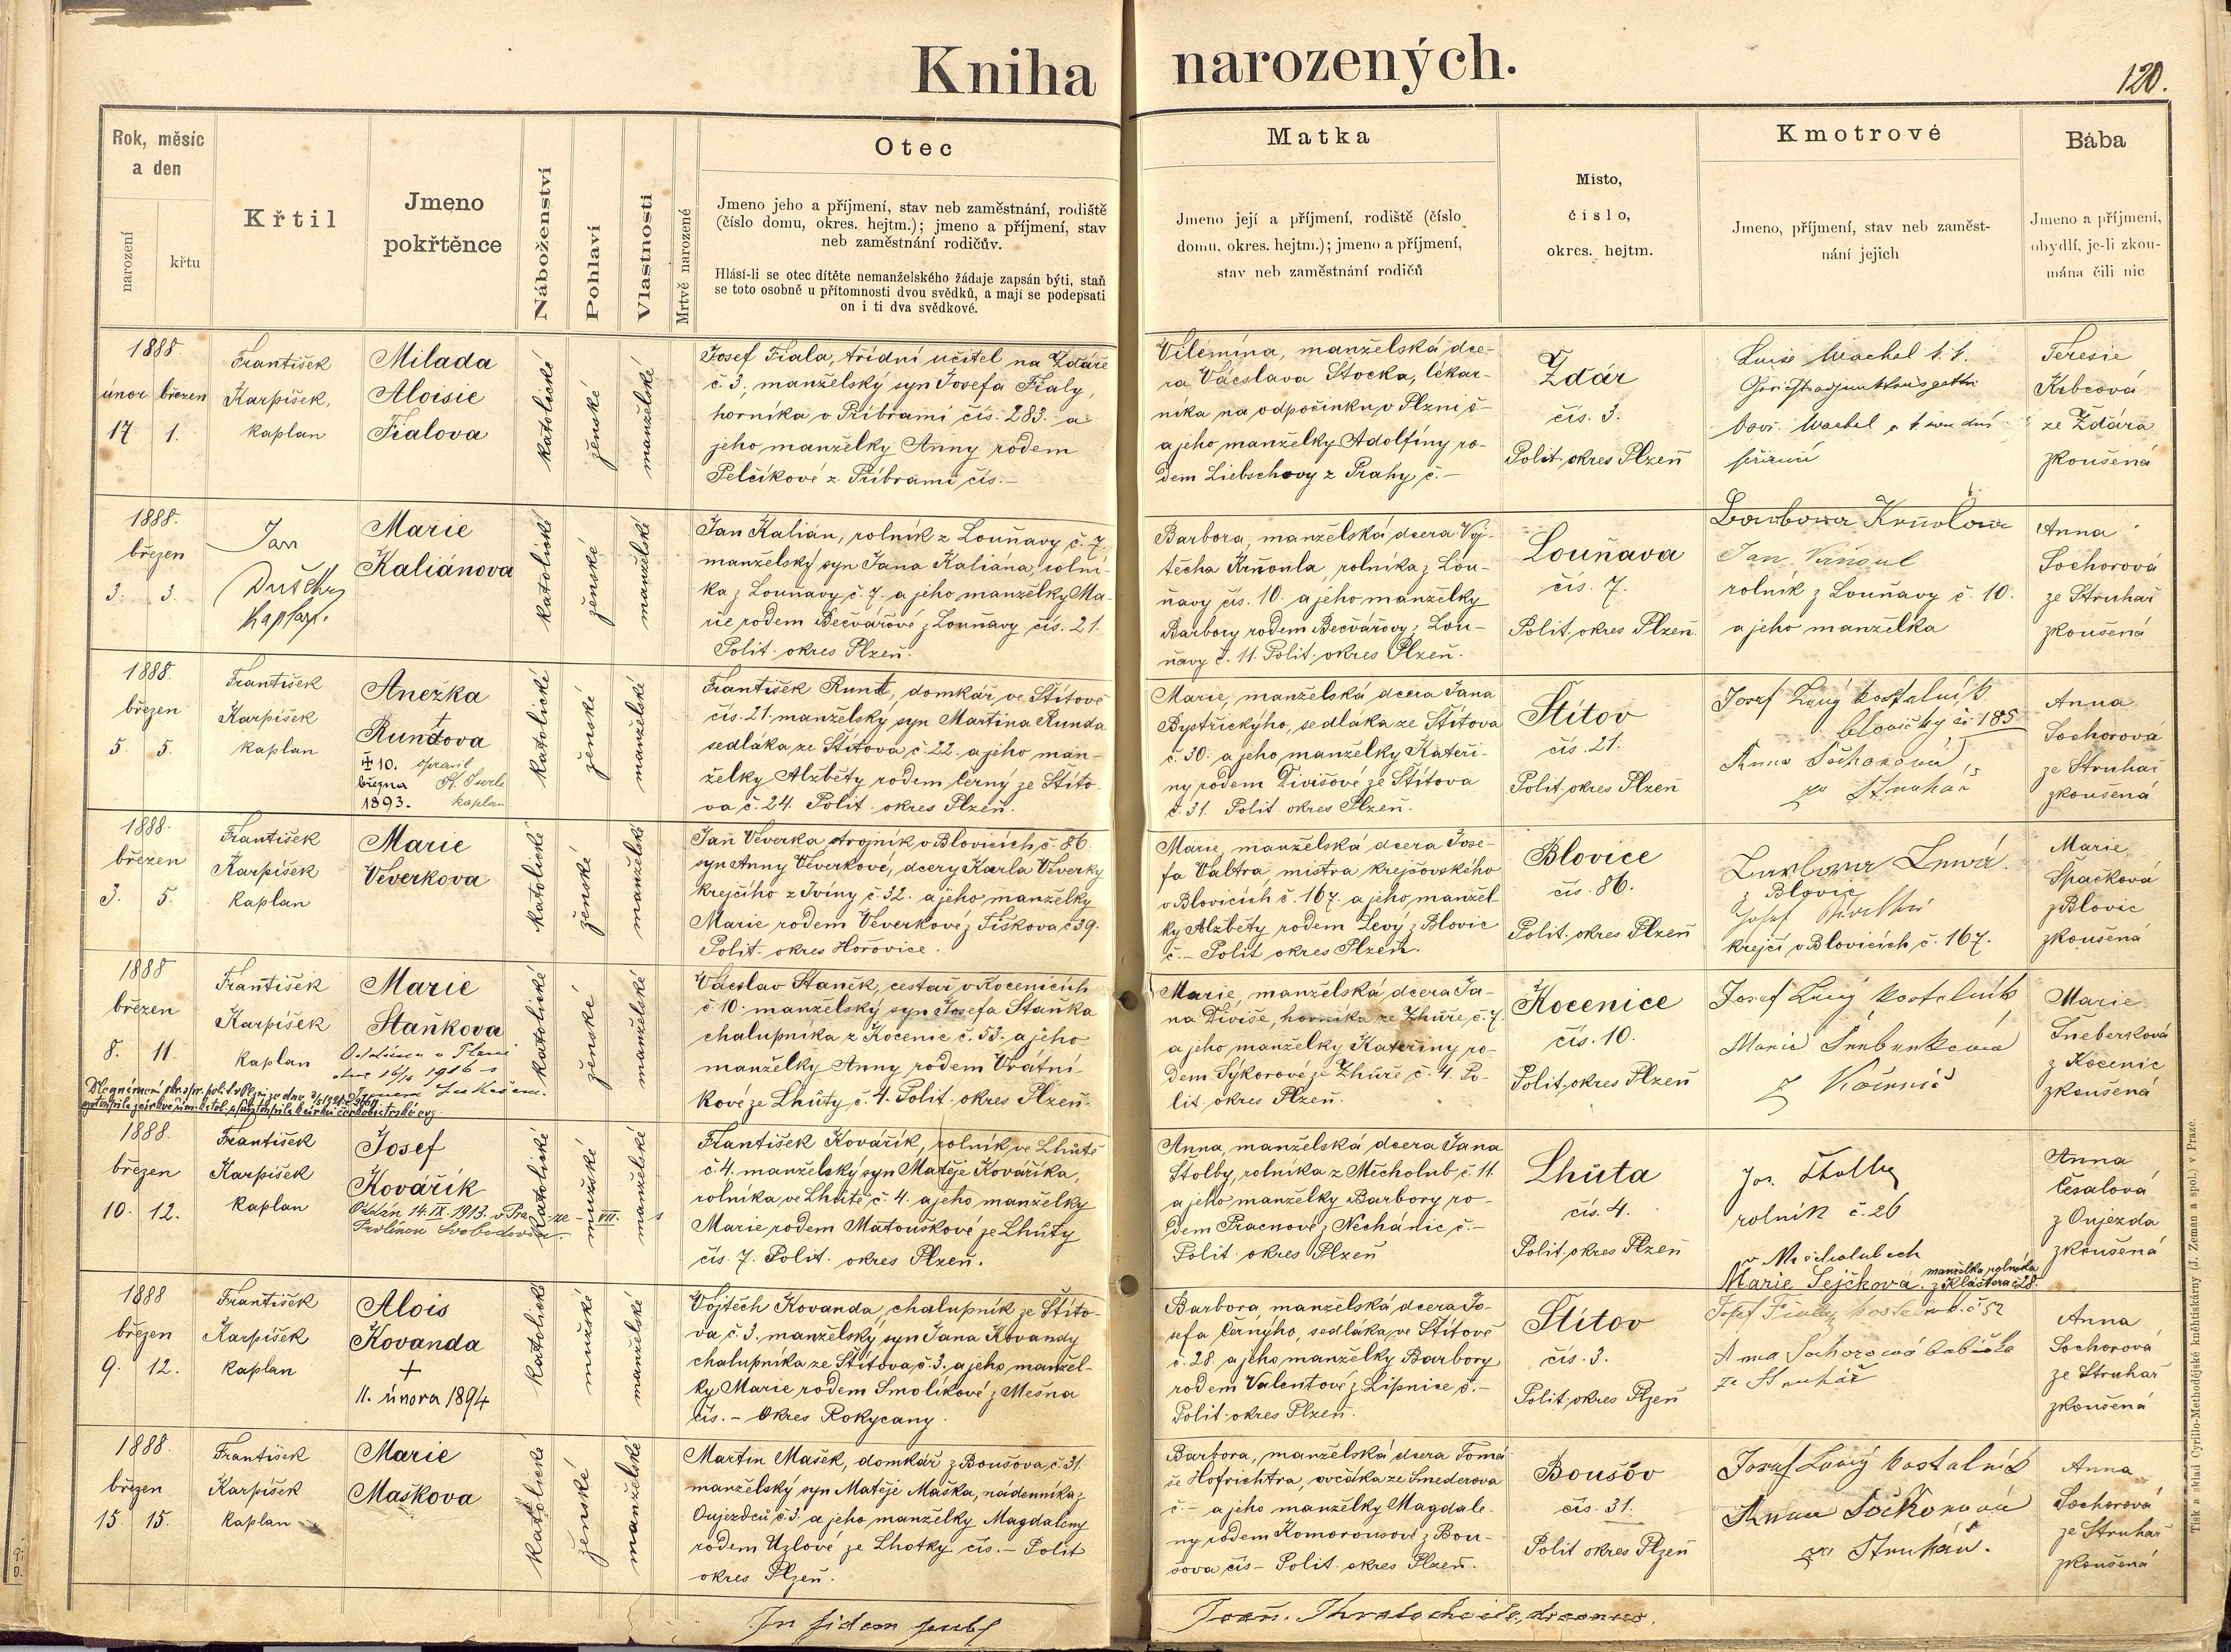 Kniha narozených.
120.
Rok, měsíc
a den
narození
křtu
Křtil
Jmeno
pokřtěnce
Náboženství
Pohlaví
Vlastnosti
Mrtvě narozené
Otec
Jmeno jeho a příjmení, stav neb zaměstnání, rodiště
(číslo domu, okres. hejtm.); jmeno a příjmení, stav
neb zaměstnání rodičův.
Hlásí-li se otec dítěte nemanželského žádaje zapsán býti, staň
se toto osobně u přítomnosti dvou svědků, a mají se podepsati
on i ti dva svědkové.
Matka
Jmeno její a příjmení, rodiště (číslo
domu, okres. hejtm.); jmeno a příjmení,
stav neb zaměstnání rodičů
Místo,
číslo,
okres. hejtm.
Kmotrové
Jmeno, příjmení, stav neb zaměst-
nání jejich
Bába
Jmeno a příjmení,
obydlí, je-li zkou-
mána čili nic
1888
únor březen
17. 1.
František
Karpíšek,
kaplan
Milada
Aloisie
Fialova
katolické
ženské
manželské
Josef Fiala, třídní učitel na Ždáře
č. 3., manželský syn Josefa Fialy,
horníka v Příbrami čís. 283. a
jeho manželky Anny rodem
Pelčíkové z Příbrami čís. –
Vilemína, manželská dce-
ra Václava Stocka, lékár-
níka na odpočinku v Plzni č –
a jeho manželky Adolfíny ro-
dem Liebschovy z Prahy, č. –
Ždár
čís. 3.
Polit. okres Plzeň
Luise Wachel
Teresie
Krbcová
ze Ždára
zkoušená
1888.
březen
3. 3.
Jan
Dušek
kaplan.
Marie
Kaliánova
katolické
ženské
manželské
Jan Kalián, rolník z Louňavy č. 7.
manželský syn Jana Kaliána, rolní-
ka z Louňavy č. 7. a jeho manželky Ma-
rie rodem Bečvářové z Louňavy čís. 21.
Polit. okres Plzeň.
Barbora, manželská dcera Voj-
těcha Krňoula, rolníka z Lou-
ňavy čís. 10. a jeho manželky
Barbory rodem Bečvářovy z Lou-
ňavy č. 11. Polit. okres Plzeň.
Louňava
čís. 7.
Polit. okres Plzeň.
Barbora Krňolova
Jan Krňoul
rolník z Louňavy č. 10.
a jeho manželka
Anna
Sochorová
ze Struhař
zkoušená
1888.
březen
5. 5.
František
Karpíšek
kaplan
Anežka
Runtova
10. opravil
března
1893. kaplan
katolické
ženské
manželské
František Runt, domkář, ve Štítově
čís. 21. manželský syn Martina Runda
sedláka ze Štítova č. 22. a jeho man-
želky Alžběty rodem Černý ze Štíto-
va č. 24. Polit. okres Plzeň.
Marie, manželská dcera Jana
Bystřického, sedláka ze Štítova
č. 30. a jeho manželky Kateři-
ny rodem Divišové ze Štítova
č. 31. Polit. okres Plzeň.
Štítov
čís. 21.
Polit. okres Plzeň
Josef Langý kostelník
č. 185
Anna Sochorová
ze Struhař
Anna
Sochorová
ze Struhař
zkoušená
1888.
březen
3. 5.
František
Karpíšek
kaplan
Marie
Veverkova
katolické
ženské
manželské
Jan Veverka strojník v Blovicích č. 86.
syn Anny Veverkové, dcery Karla Veverky
krejčího z Jvíny č. 32. a jeho manželky
Marie rodem Veverkové z Tiškova č. 39.
Polit. okres Hořovice.
Marie, manželská dcera Jose-
fa Valtra, mistra krejčovského
v Blovicích č. 167. a jeho manžel-
ky Alžběty rodem Levý z Blovic
č. – Polit okres Plzeň.
Blovice
čís. 86.
Polit. okres Plzeň
z Blovic
Josef
krejčí v Blovicích č. 167.
Marie
Špačková
z Blovic
zkoušená
1888
březen
8. 11.
František
Karpíšek
kaplan
Marie
Staňkova
katolické
ženské
manželské
Václav Staněk, cestář v Kocenicích
č. 10. manželský syn Josefa Staňka
chalupníka z Kocenic č. 53. a jeho
manželky Anny rodem Vrátní-
kové ze Lhůty č. 4. Polit. okres Plzeň.
Marie, manželská dcera Ja-
na Diviše, horníka ze Zhůře, č. 7
a jeho manželky Kateřiny ro-
dem Sýkorové ze Zhůře č. 4. Po-
lit. okres Plzeň.
Kocenice
čís. 10.
Polit. okres Plzeň
Josef Langý kostelník
Marie
z Kocenic
Marie
Šneberková
z Kocenic
zkoušená
1888.
březen
10. 12.
František
Karpíšek
kaplan
Josef
Kovářík
Oddán 14. IX. 1913. v Pra-ze – VII. s
Pavlínou Svobodovou.
katolické
mužské
manželské
František Kovářík, rolník ve Lhůtě
č. 4. manželský syn Matěje Kováříka,
rolníka ve Lhůtě č. 4. a jeho manželky
Marie rodem Matouškové ze Lhůty
čís. 7. Polit. okres Plzeň.
Anna, manželská dcera Jana
Štolby, rolníka z Měcholub č. 11.
a jeho manželky Barbory ro-
dem Pracnové z Nechánic č. –
Polit. okres Plzeň
Lhůta
čís. 4.
Polit. okres Plzeň
Jos. Štolba
rolník č. 26
v Měcholubech
Marie Sejčková manželka rolníka
z Kláštera č. 28.
Anna
Česalová
z Oujezda
zkoušená
1888
březen
9. 12.
František
Karpíšek
kaplan
Alois
Kovanda
+
11. února 1894
katolické
mužské
manželské
Vojtěch Kovanda, chalupník ze Štíto-
va č. 3. manželský syn Jana Kovandy
chalupníka ze Štítova, č. 3. a jeho manžel-
ky Marie rodem Smolíkové z Mešna
čís. – Okres Rokycany.
Barbora, manželská dcera Jo-
sefa Černýho, sedláka, ve Štítově
č. 28. a jeho manželky Barbory
rodem Valentové z Lipnice č. –
Polit. okres Plzeň.
Štítov
čís. 3.
Polit. okres Plzeň
Anna Sochorová babička
ze Struhař
Anna
Sochorová
ze Struhař
zkoušená
1888.
březen
15. 15.
František
Karpíšek
kaplan
Marie
Maškova
katolické
ženské
manželské
Martin Mašek, domkář z Boušova, č. 31.
manželský syn Matěje Maška, nádenníka z
Oujezdců č. 3. a jeho manželky Magdaleny
rodem Uzlové ze Lhotky čís. – Polit
okres Plzeň.
Barbora, manželská dcera Tomá-
še Hofrichtra, ovčáka ze Smederova
č – a jeho manželky Magdale-
ny rodem Komorousové z Bou-
šova čís – Polit. okres Plzeň.
Boušov
čís. 31.
Polit okres Plzeň
Josef Langý kostelník
Anna Sochorová
ze Struhař.
Anna
Sochorová
ze Struhař
zkoušená
In fidem
Tisk a sklad Cyrillo-Methodějské knihtiskárny (J. Zeman a spol.) v Praze.